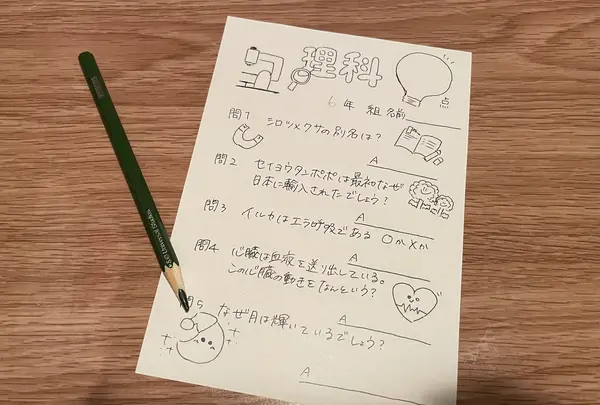 理科
点
6年 組 名前
問1 シロツメクサの別名は?
A
問2 セイヨウタンポポは最初なぜ
日本に輸入されたでしょう?
A
問3 イルカはエラ呼吸である ○か×か
A
問4 心臓は血液を送り出している。
この心臓の動きをなんという?
A
問5 なぜ月は輝いているでしょう?
A